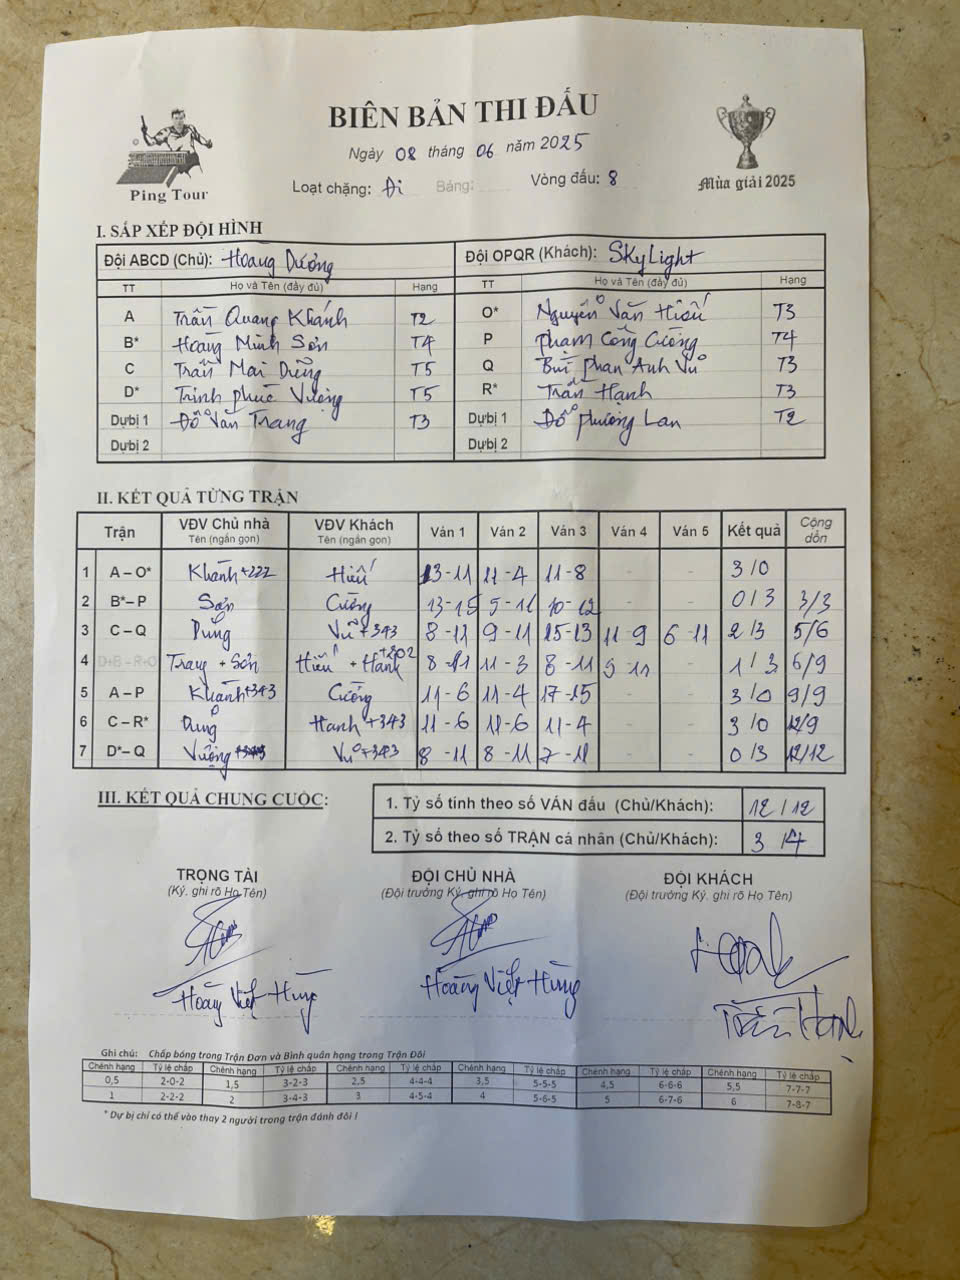 BIÊN BẢN THI ĐẤU
Ngày 08 tháng 06 năm 2025
Ping Tour
Loạt chặng: Đi Bảng: Vòng đấu: 8
Mùa giải 2025
I. SẮP XẾP ĐỘI HÌNH
Đội ABCD (Chủ): Hoàng Dương Đội OPQR (Khách): SkyLight
TT Họ và Tên (đầy đủ) Hạng TT Họ và Tên (đầy đủ) Hạng
A Trần Quang Khánh T2 O* Nguyễn Văn Hiếu T3
B* Hoàng Minh Sơn T4 P Phạm Công Cường T4
C Trần Mai Dũng T5 Q Bùi Phan Anh Vũ T3
D* Trịnh Phúc Vượng T5 R* Trần Hạnh T3
Dự bị 1 Đỗ Văn Trang T3 Dự bị 1 Đỗ Phương Lan T2
Dự bị 2 Dự bị 2
II. KẾT QUẢ TỪNG TRẬN
Trận VĐV Chủ nhà VĐV Khách Ván 1 Ván 2 Ván 3 Ván 4 Ván 5 Kết quả Cộng dồn
Tên (ngắn gọn) Tên (ngắn gọn)
1 A – O* Khánh +222 Hiếu 13 - 11 11 - 4 11 - 8 - - 3/0
2 B* – P Sơn Cường 13 - 15 9 - 11 10 - 12 - - 0/3 3/3
3 C – Q Dũng Vũ +343 8 - 11 9 - 11 15 - 13 11 - 9 6 - 11 2/3 5/6
4 D+B – R+O Trang + Sơn Hiếu + Hạnh +202 8 - 11 11 - 3 8 - 11 9 11 - 1/3 6/9
5 A – P Khánh +343 Cường 11 - 6 11 - 4 17 - 15 - - 3/0 9/9
6 C – R* Dũng Hạnh +343 11 - 6 11 - 6 11 - 4 - - 3/0 12/9
7 D* – Q Vượng Vũ +343 8 - 11 8 - 11 7 - 11 - - 0/3 12/12
III. KẾT QUẢ CHUNG CUỘC:
1. Tỷ số tính theo số VÁN đấu (Chủ/Khách): 12/12
2. Tỷ số theo số TRẬN cá nhân (Chủ/Khách): 3/4
TRỌNG TÀI ĐỘI CHỦ NHÀ ĐỘI KHÁCH
(Ký, ghi rõ Họ Tên) (Đội trưởng Ký, ghi rõ Họ Tên) (Đội trưởng Ký, ghi rõ Họ Tên)
Hoàng Việt Hùng Hoàng Việt Hùng Trần Hạnh
Ghi chú: Chấp bóng trong Trận Đơn và Bình quân hạng trong Trận Đôi
Chênh hạng Tỷ lệ chấp Chênh hạng Tỷ lệ chấp Chênh hạng Tỷ lệ chấp Chênh hạng Tỷ lệ chấp Chênh hạng Tỷ lệ chấp Chênh hạng Tỷ lệ chấp
0,5 2-0-2 1,5 3-2-3 2,5 4-4-4 3,5 5-5-5 4,5 6-6-6 5,5 7-7-7
1 2-2-2 2 3-4-3 3 4-5-4 4 5-6-5 5 6-7-6 6 7-8-7
* Dự bị chỉ có thể vào thay 2 người trong trận đánh đôi !